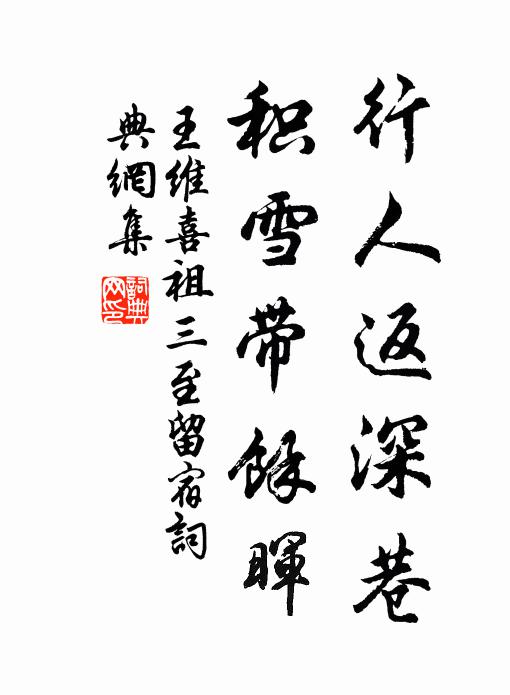 行人返深巷
积雪带餘暉
王维喜祖三至留宿詞
典網集
詞典网印